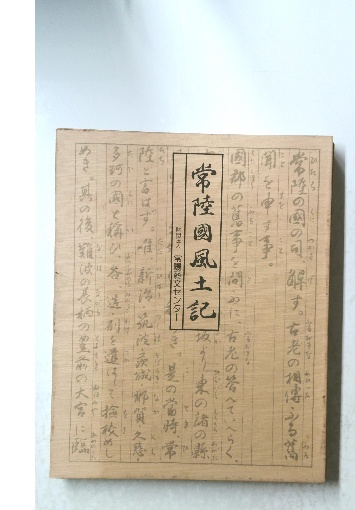 常陸國風土記
財団法人 常陽藝文センター
常陸の国の司、解す。古老の相傳ふる舊
聞を申す事。
國郡の舊事を問ふに、古老の答へていへらく、
坂より東の諸の縣
き。是の當時、常
陸と言はず。唯、新治・筑波・茨城・那賀・久慈・
多珂の國と稱ひ、各、造・別を遣はして檢校めし
めき。其の後、難波の長柄の豊前の大宮に臨